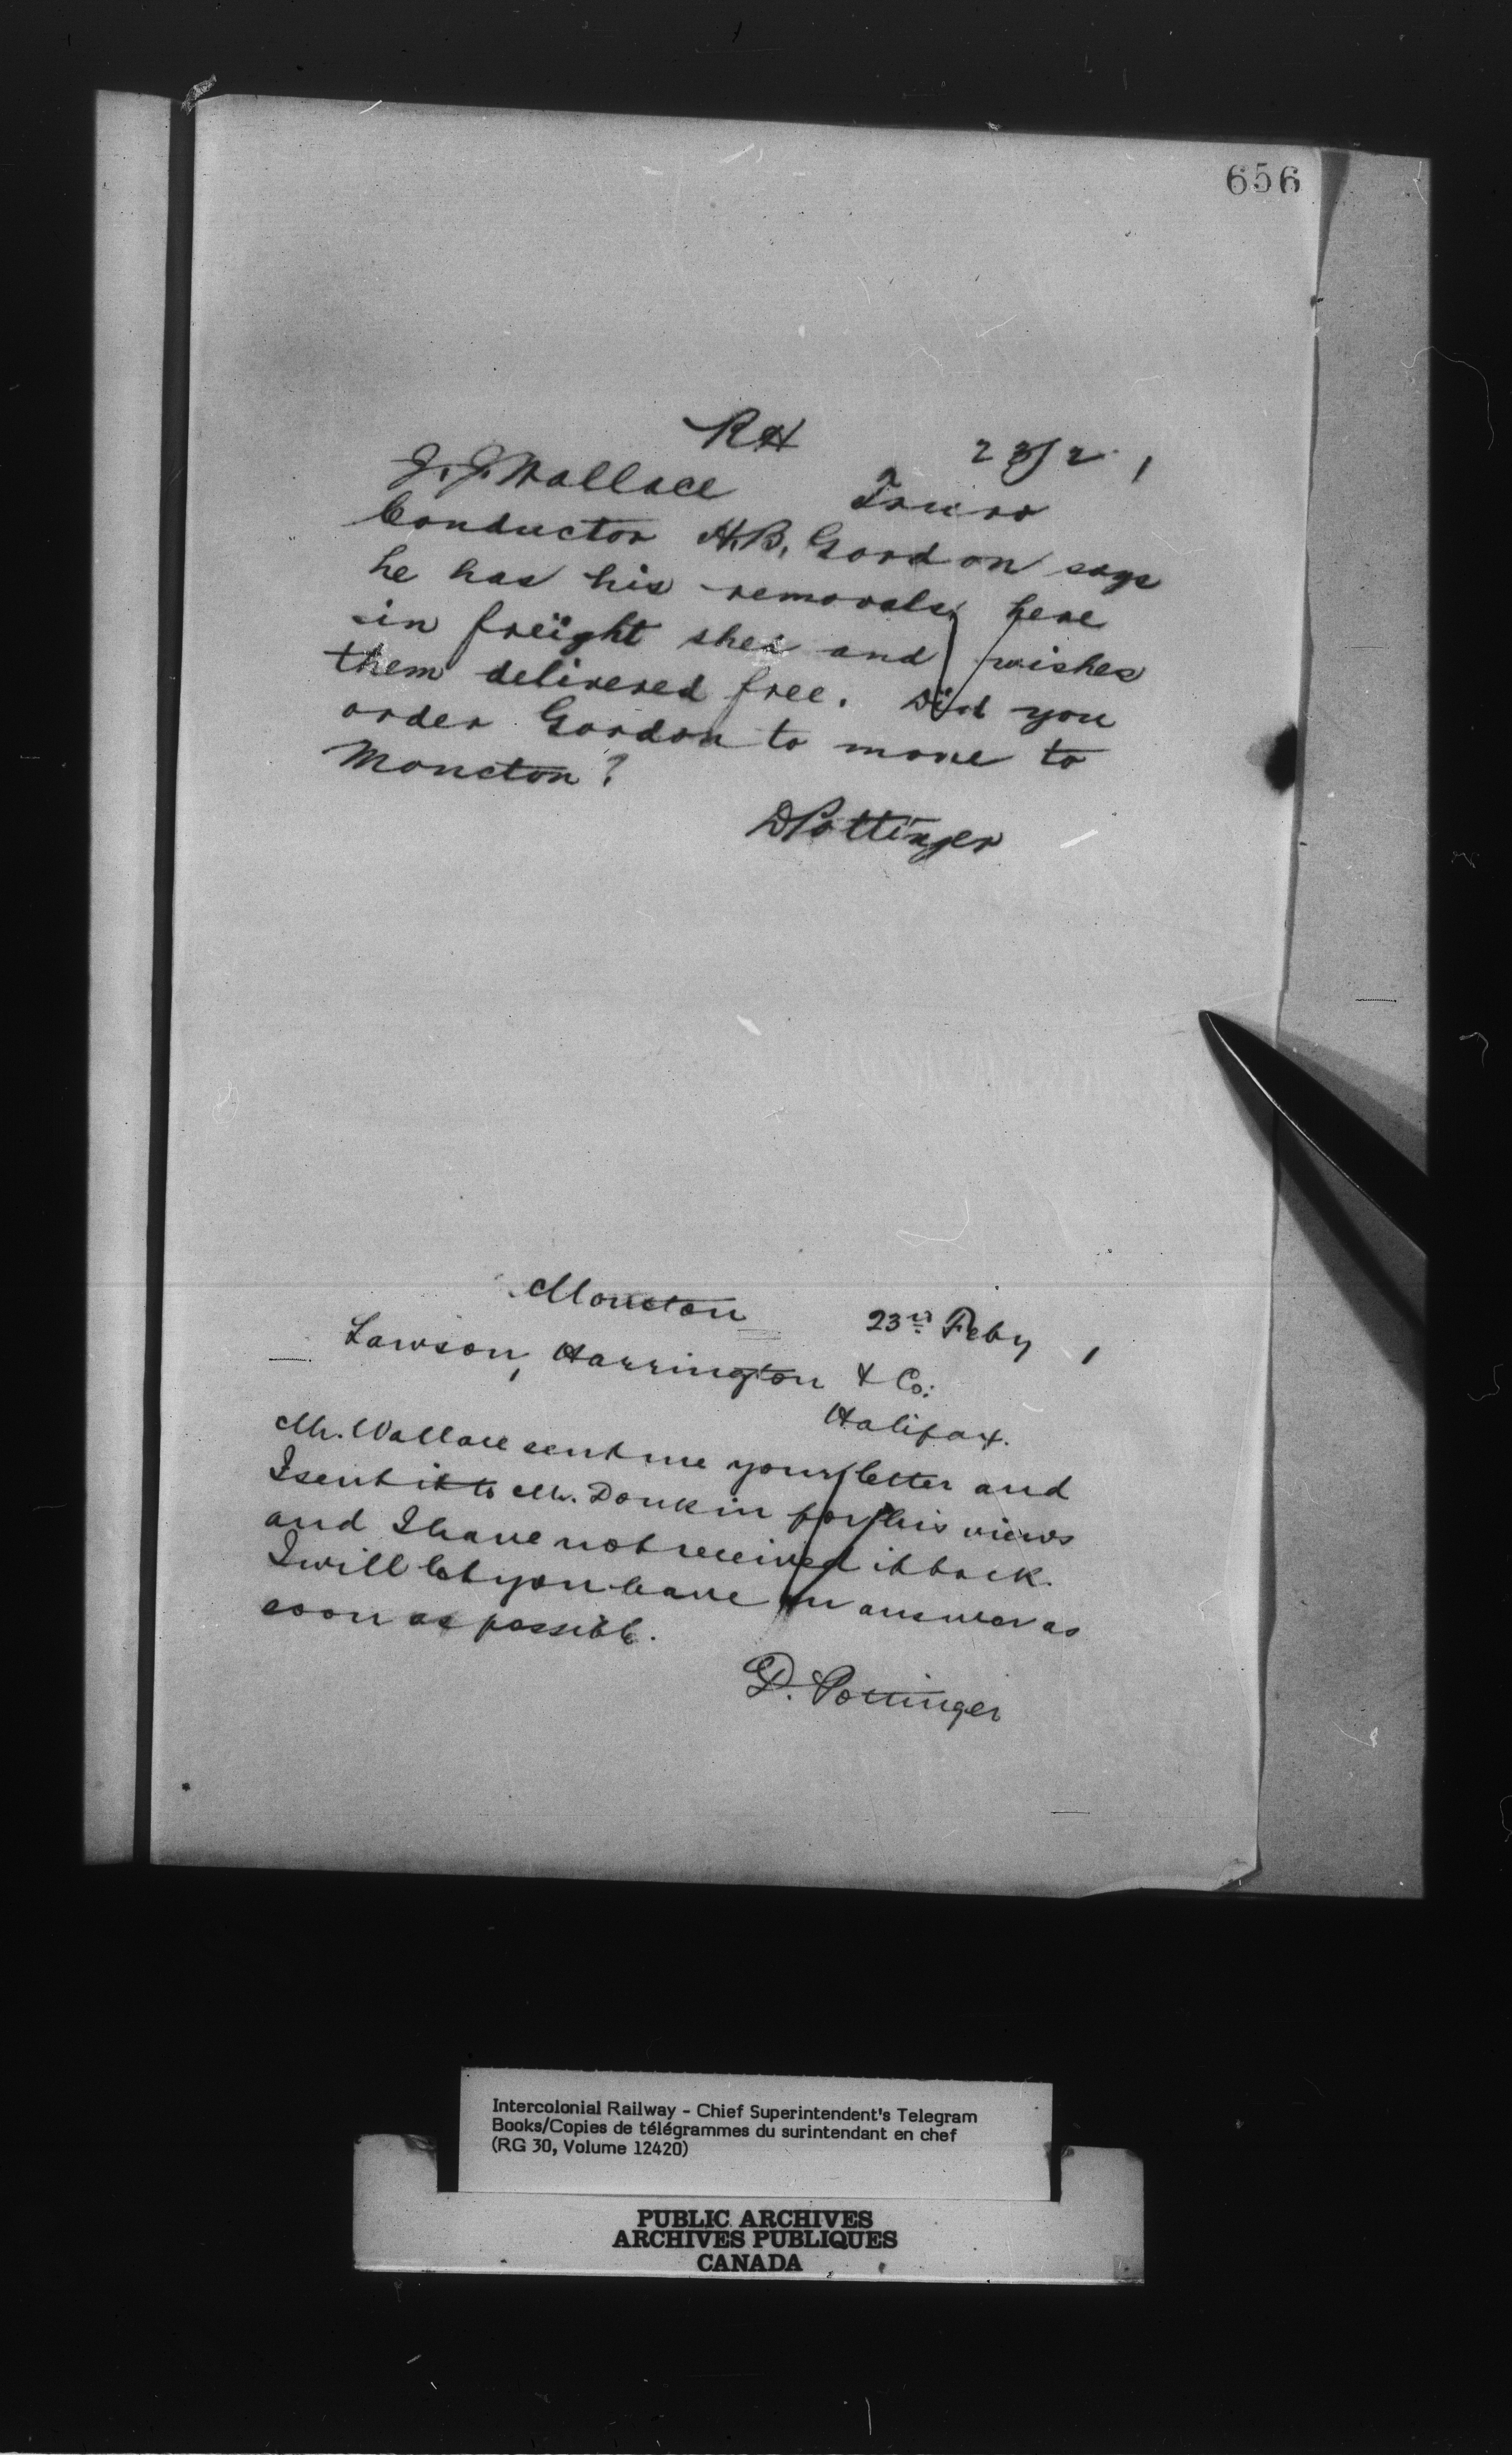 656
RH 23/2
J. J. Wallace Truro
Conductor H.B. Gordon says
he has his removals here
in freight shed and wishes
them delivered free. Did you
order Gordon to move to
Moncton?
D Pottinger
Moncton 23rd Feby
Lawson, Harrington & Co:
Halifax.
Mr. Wallace sent me your letter and
I sent it to Mr. Donkin for his views
and I have not received it back.
I will let you have an answer as
soon as possible.
D. Pottinger
Intercolonial Railway - Chief Superintendent's Telegram
Books/Copies de télégrammes du surintendant en chef
(RG 30, Volume 12420)
PUBLIC ARCHIVES
ARCHIVES PUBLIQUES
CANADA